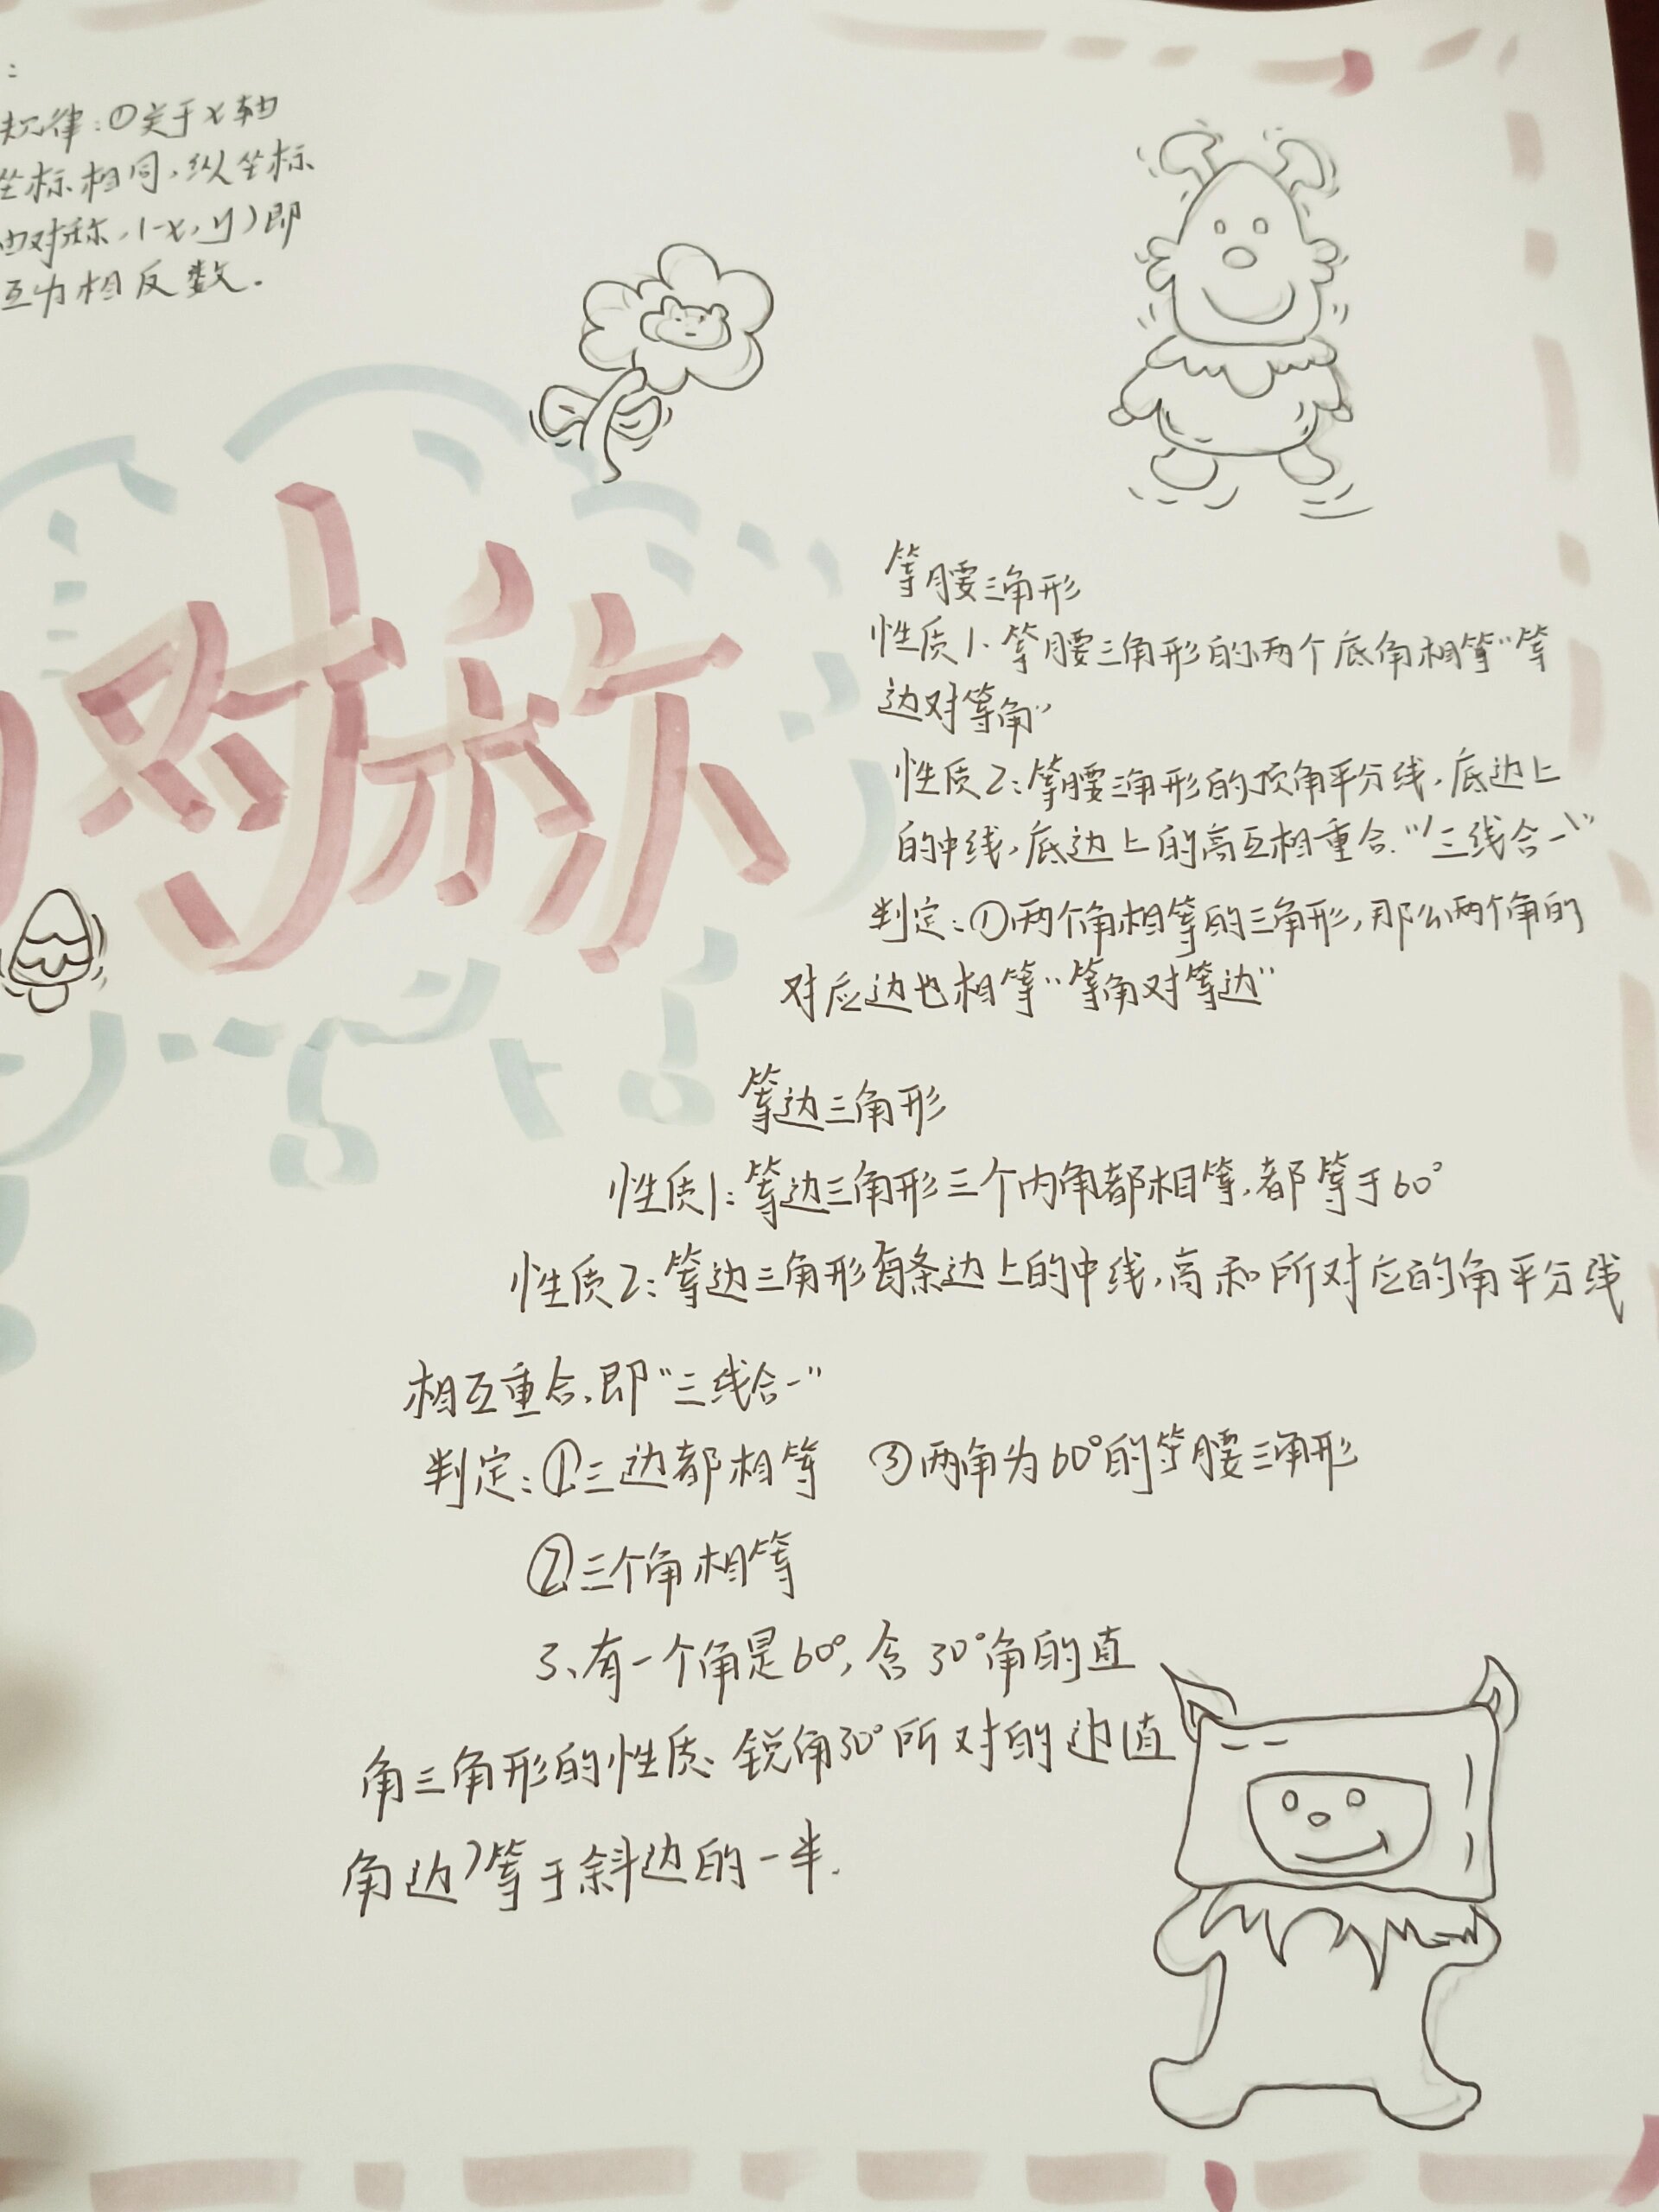 :
规律:①关于x轴
坐标相同,纵坐标
对称,(-x,y)即
互为相反数.
对称
等腰三角形
性质1、等腰三角形的两个底角相等"等
边对等角"
性质2:等腰三角形的顶角平分线,底边上
的中线,底边上的高互相重合."三线合一"
判定:①两个角相等的三角形,那么两个角的
对应边也相等"等角对等边"
等边三角形
性质1:等边三角形三个内角都相等,都等于60°
性质2:等边三角形每条边上的中线,高和所对应的角平分线
相互重合,即"三线合一"
判定:①三边都相等 ③两角为60°的等腰三角形
②三个角相等
3、有一个角是60°,含30°角的直
角三角形的性质:锐角30°所对的边直
角边)等于斜边的一半.